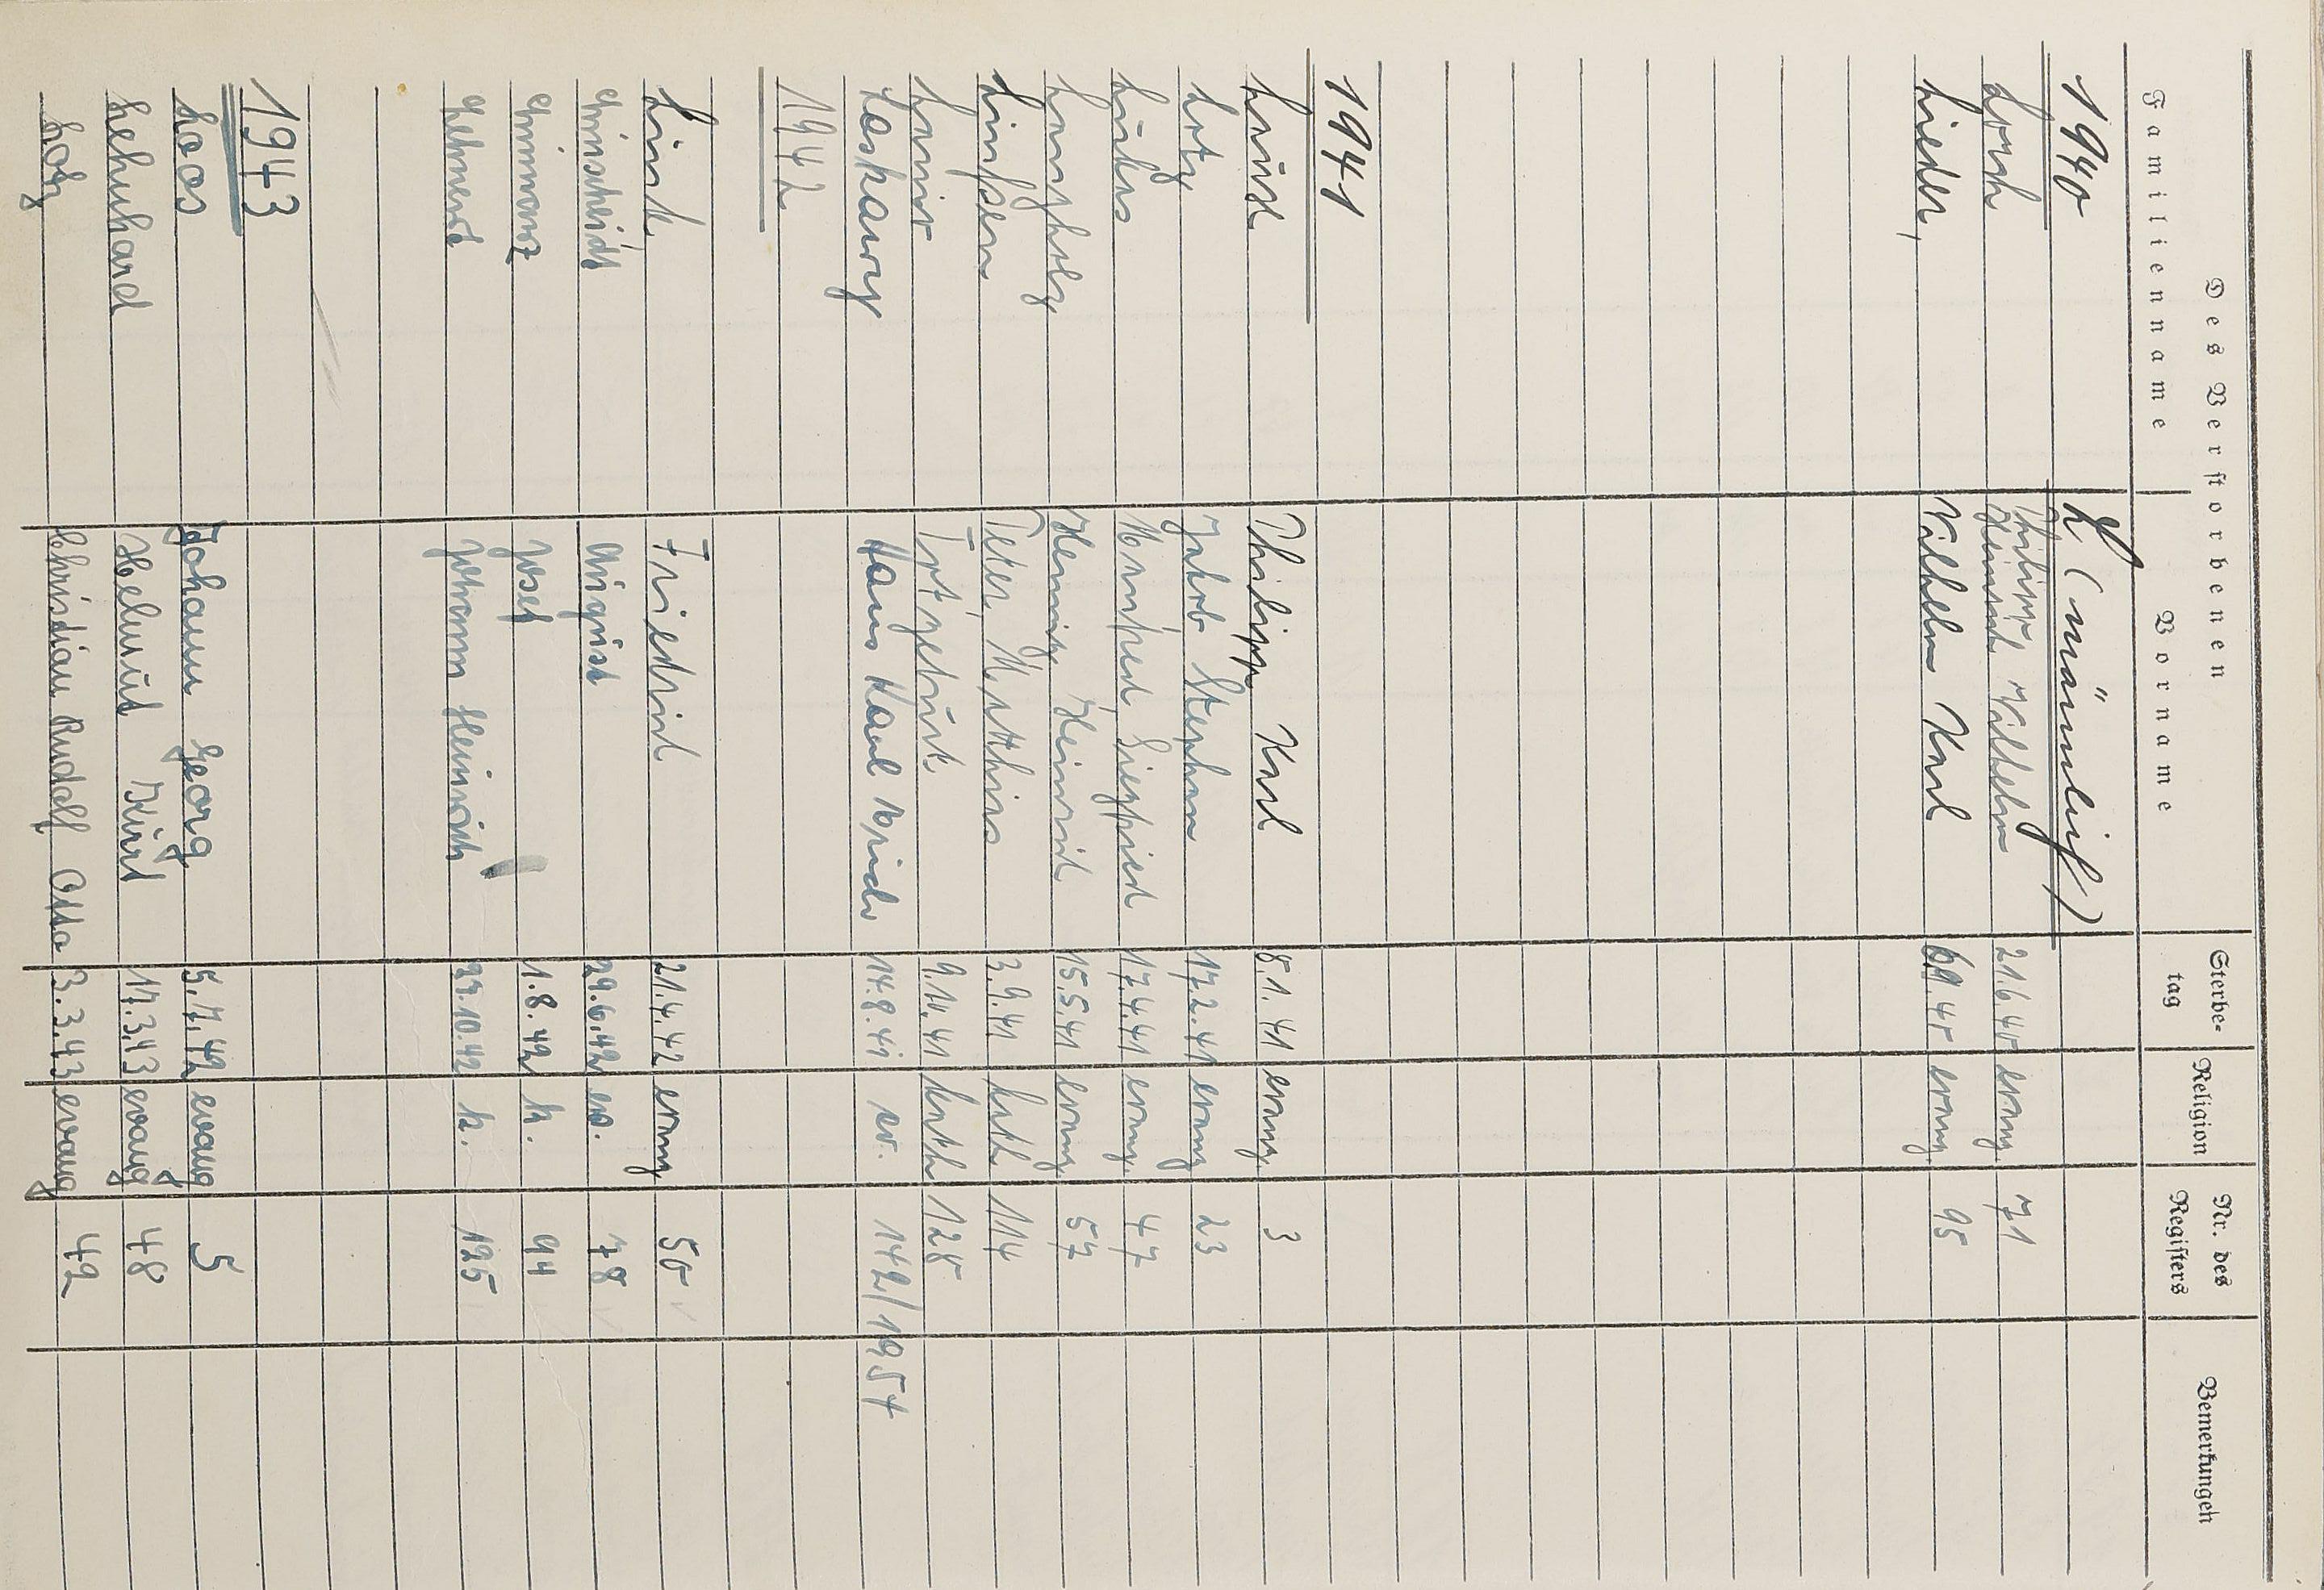 Des Verstorbenen
Familienname Vorname Sterbetag Religion Nr. des Registers Bemerkungen
1940 L (männlich)
Lorch Philipp Heinrich Wilhelm 21.6.40 evang. 71
Lieder, Wilhelm Karl 40 evang. 95
1941
Philipp Karl 8.1.41 evang. 3
Lotz Jakob Stephan 17.2.41 evang 23
Manfred Siegfried 17.4.41 evang. 47
Heinrich 15.5.41 evang 57
Peter Matthias 3.9.41 kath 114
Totgeburt 9.10.41 kath 128
Laskawy Hans Karl 14.8.41 ev. 142/1957
1942
Link Friedrich 21.4.42 evang 50
August 29.6.42 ev. 78
Josef 1.8.42 k. 94
Johann Heinrich 29.10.42 k. 125
1943
Loos Johann Georg 5.7.42 evang 5
Lehnhard Helmut Kurt 17.3.43 evang 48
Lotz Christian Rudolf Otto 3.3.43 evang 42